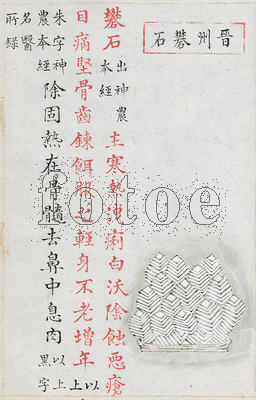 晉州礬石
礬石出神農本經主寒熱洩痢白沃陰蝕惡瘡
目痛堅骨齒鍊餌服之輕身不老增年以上
朱字神農本經除固熱在骨髓去鼻中息肉以上黑字
名醫所錄
fotoe